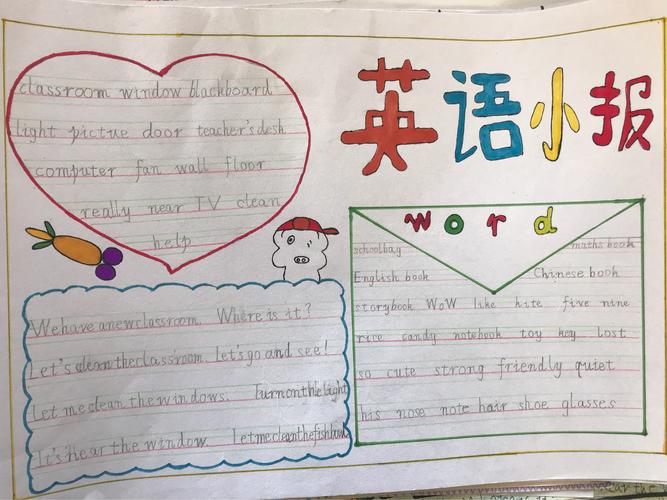 英语小报
classroom window blackboard
light pictue door teacher's desk
computer fan wall floor
really near TV clean
help
word
schoolbag maths book
English book Chinese book
storybook WoW like kite five nine
rice candy notebook toy key lost
so cute strong friendly quiet
his nose note hair shoe glasses
We have a new classroom. Where is it?
Let's clean the classroom. Let's go and see!
Let me clean the windows. Turn on the light
It's near the window. Let me clean the fish bowl
ear the